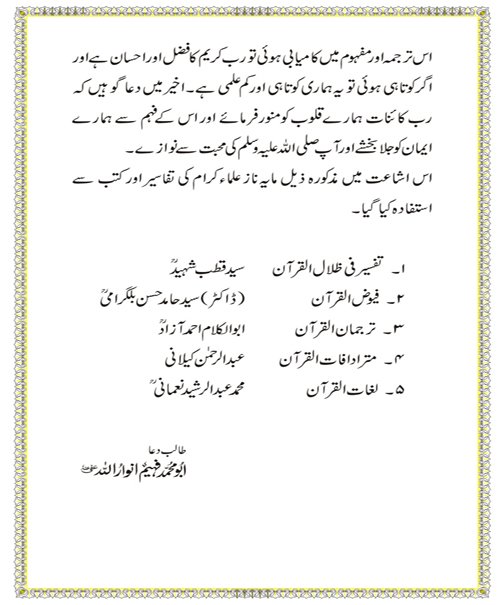 اس ترجمہ اور مفہوم میں کامیابی ہوئی تو رب کریم کا فضل اور احسان ہے اور
اگر کوتاہی ہوئی تو یہ ہماری کوتاہی اور کم علمی ہے۔ اخیر میں دعا گو ہیں کہ
رب کائنات ہمارے قلوب کو منور فرمائے اور اس کے فہم سے ہمارے
ایمان کو جلا بخشے اور آپ صلی اللہ علیہ وسلم کی محبت سے نوازے۔
اس اشاعت میں مذکورہ ذیل مایہ ناز علماء کرام کی تفاسیر اور کتب سے
استفادہ کیا گیا۔
۱۔ تفسیر فی ظلال القرآن سید قطب شہیدؒ
۲۔ فیوض القرآن (ڈاکٹر) سید حامد حسن بلگرامیؒ
۳۔ ترجمان القرآن ابوالکلام احمد آزادؒ
۴۔ مترادافات القرآن عبدالرحمٰن کیلانی
۵۔ لغات القرآن محمد عبدالرشید نعمانیؒ
طالب دعا
ابو محمد فہیم انوار اللہ